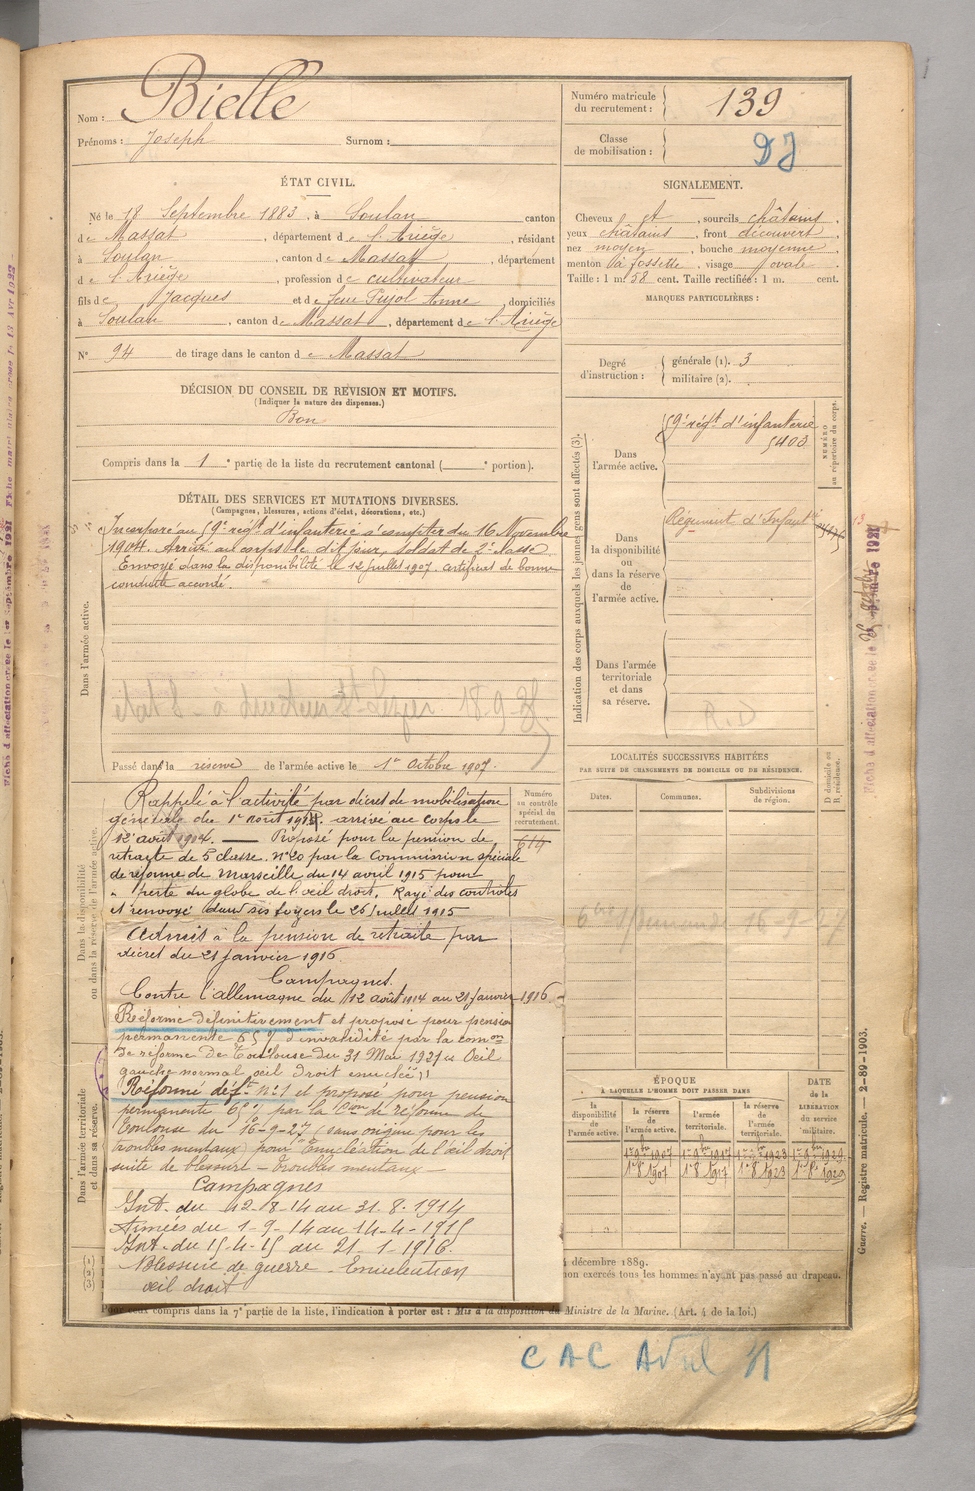 Nom : Bielle
Prénoms : Joseph Surnom :
Numéro matricule du recrutement : 139
Classe de mobilisation : DJ
ÉTAT CIVIL.
Né le 18 Septembre 1883, à Soulan canton
de Massat, département de l'Ariège, résidant
à Soulan, canton de Massat, département
de l'Ariège, profession de cultivateur
fils de Jacques et de feue Pujol Anne, domiciliés
à Soulan, canton de Massat, département de l'Ariège
N° 94 de tirage dans le canton de Massat
SIGNALEMENT.
Cheveux et, sourcils châtains,
yeux châtains, front découvert,
nez moyen, bouche moyenne,
menton à fossette, visage ovale.
Taille : 1 m. 58 cent. Taille rectifiée : 1 m. cent.
MARQUES PARTICULIÈRES :
Degré d'instruction : générale (1). 3
militaire (2).
DÉCISION DU CONSEIL DE REVISION ET MOTIFS.
(Indiquer la nature des dispenses.)
Bon
Compris dans la 1e partie de la liste du recrutement cantonal ( e portion).
DÉTAIL DES SERVICES ET MUTATIONS DIVERSES.
(Campagnes, blessures, actions d'éclat, décorations, etc.)
Dans l'armée active.
Incorporé au 59e régt d'infanterie à compter du 16 Novembre
1904. Arrivé au corps le dit jour, soldat de 2e classe.
Envoyé dans la disponibilité le 12 juillet 1907. certificat de bonne
conduite accordé.
Passé dans la réserve de l'armée active le 1er Octobre 1907.
Indication des corps auxquels les jeunes gens sont affectés (3).
NUMÉRO
au répertoire du corps.
Dans
l'armée active.
59e régt d'infanterie
5403
Dans
la disponibilité
ou
dans la réserve
de
l'armée active.
Régiment d'Infantie
Dans l'armée
territoriale
et dans
sa réserve.
R.D
Dans la disponibilité
ou dans la réserve de l'armée active.
Numéro
au contrôle
spécial du
recrutement.
614
Rappelé à l'activité par décret de mobilisation
générale du 1er août 1914. arrivé au corps le
12 août 1914. — Proposé pour la pension de
retraite de 5 classe. n° 20 par la Commission spéciale
de réforme de Marseille du 14 avril 1915 pour
" perte du globe de l'œil droit. Rayé des contrôles
et renvoyé dans ses foyers le 26 juillet 1915
Admis à la pension de retraite par
décret du 21 janvier 1916.
Campagnes.
Contre l'allemagne du 12 août 1914 au 21 janvier 1916
Réformé définitivement et proposé pour pension
permanente 65 % d'invalidité par la comon
de réforme de Toulouse du 31 Mai 1921 « Oeil
gauche normal, œil droit énucléé »
Réformé déft n° 1 et proposé pour pension
permanente 65 % par la Con de réforme de
Toulouse du 16-9-27 (sans origine pour les
troubles mentaux) pour Enucléation de l'œil droit
suite de blessure – troubles mentaux –
Campagnes
Int. du 12-8-14 au 31.8.1914
Armées du 1-9-14 au 14-4-1915
Int. du 15-4-15 au 21-1-1916.
Blessure de guerre - Enucléation
œil droit
Dans l'armée territoriale
et dans sa réserve.
LOCALITÉS SUCCESSIVES HABITÉES
PAR SUITE DE CHANGEMENTS DE DOMICILE OU DE RÉSIDENCE.
Dates. Communes. Subdivisions de région. D domicile ou R résidence.
ÉPOQUE
À LAQUELLE L'HOMME DOIT PASSER DANS
la disponibilité de l'armée active.
la réserve de l'armée active.
l'armée territoriale.
la réserve de l'armée territoriale.
DATE de la LIBÉRATION du service militaire.
1er 8bre 1907 1er 8 1917 1er 8 1923 1er 8 1929
4 décembre 1889.
non exercés tous les hommes n'ayant pas passé au drapeau.
Pour ceux compris dans la 7e partie de la liste, l'indication à porter est : Mis à la disposition du Ministre de la Marine. (Art. 4 de la loi.)
Guerre. — Registre matricule. — 2-89-1903.
CAC Avril 31